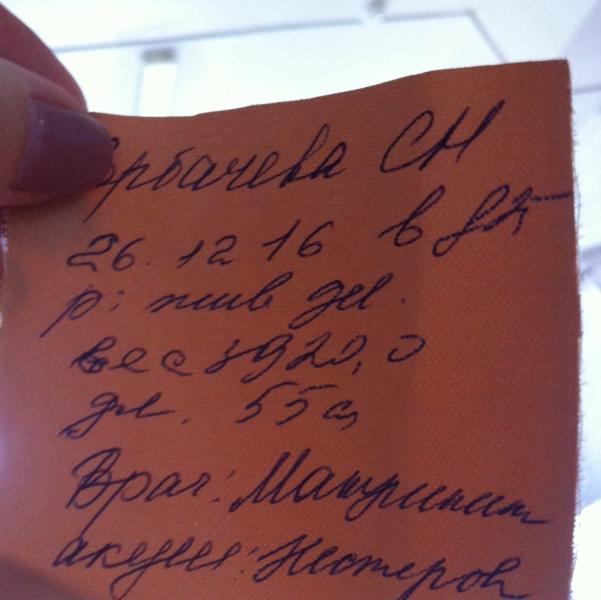 рбачева СН
26.12 16 в
р: жив дев.
вес 3920,0
дл. 55
Врач:
акуш: Нестеров